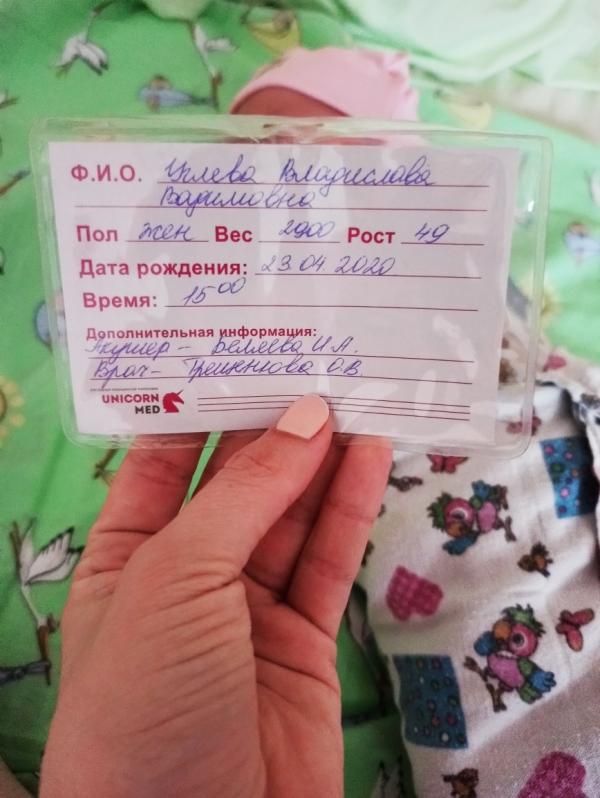 Ф.И.О. Углева Владислава
Вадимовна
Пол жен Вес 2900 Рост 49
Дата рождения: 23.04.2020
Время: 15 00
Дополнительная информация:
Акушер – Беляева И.А.
Врач – О.В.
UNICORN
MED